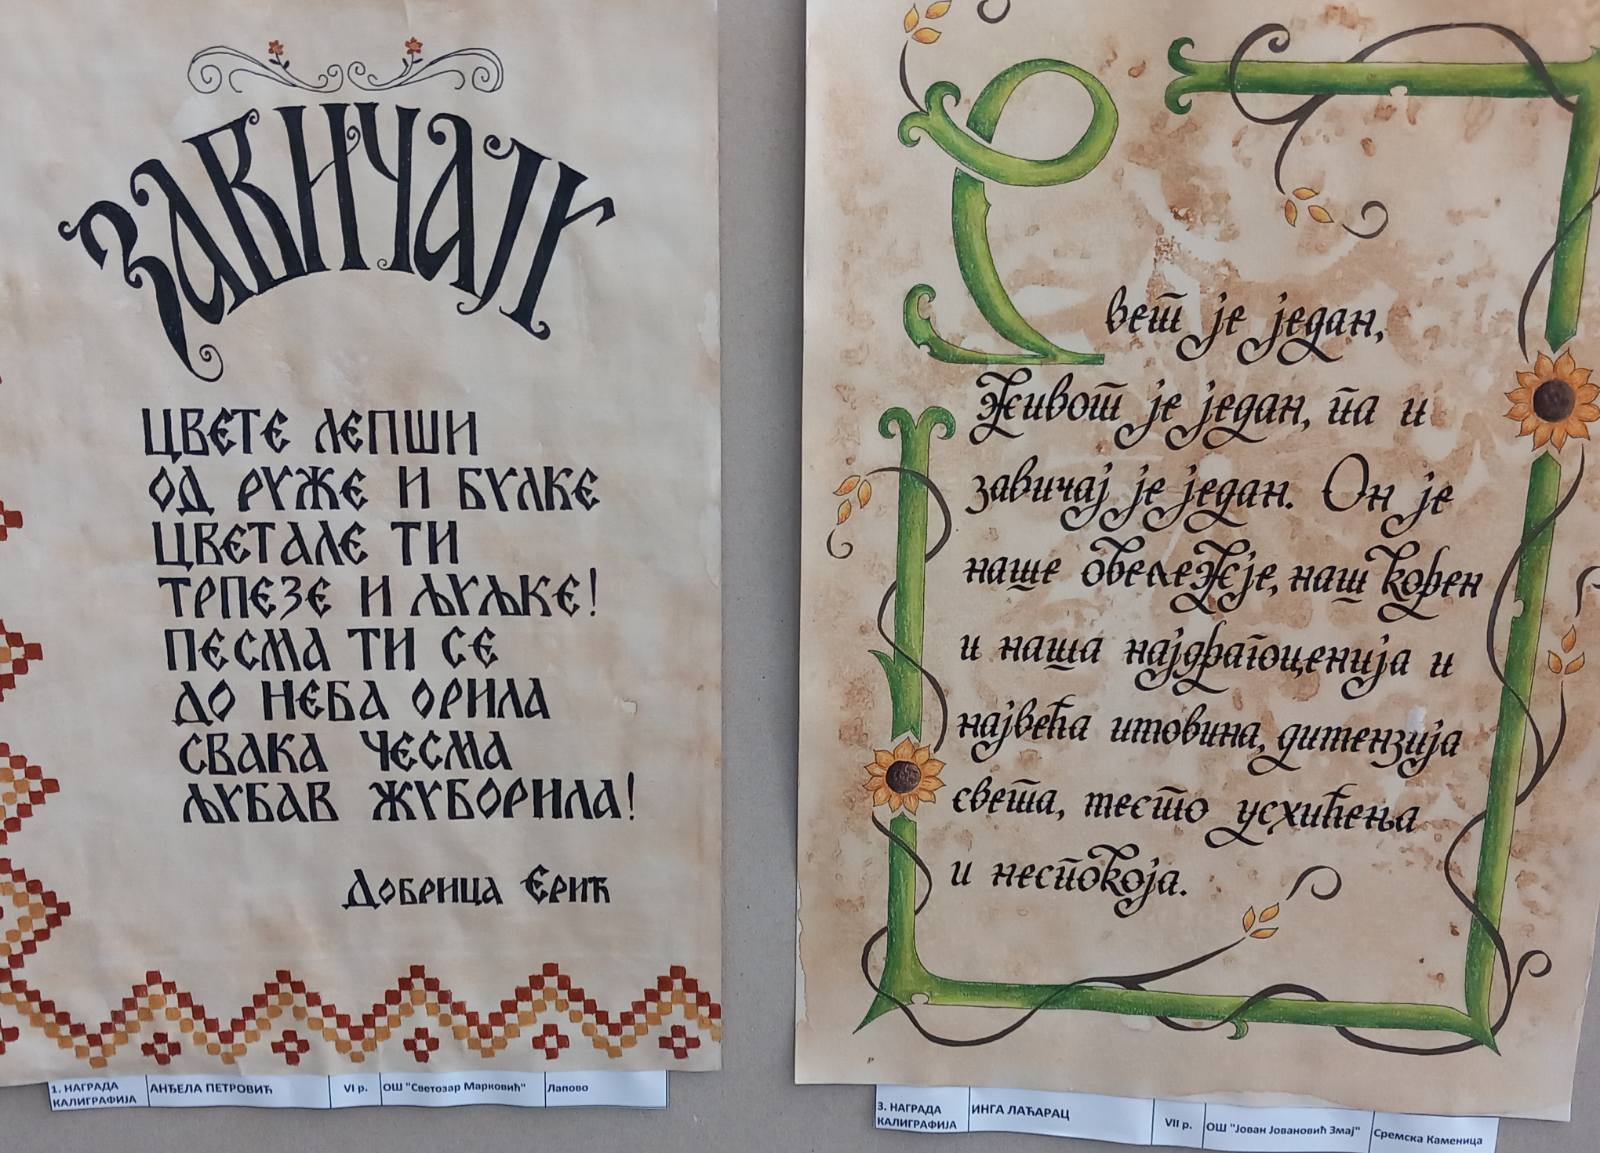 ЗАВИЧАЈУ
ЦВЕТЕ ЛЕПШИ
ОД РУЖЕ И БУЛКЕ
ЦВЕТАЛЕ ТИ
ТРПЕЗЕ И ЉУЉКЕ!
ПЕСМА ТИ СЕ
ДО НЕБА ОРИЛА
СВАКА ЧЕСМА
ЉУБАВ ЖУБОРИЛА!
ДОБРИЦА ЕРИЋ
1. НАГРАДА
КАЛИГРАФИЈА
АНЂЕЛА ПЕТРОВИЋ
VI р.
ОШ "Светозар Марковић"
Лапово
Свет је један,
живот је један, па и
завичај је један. Он је
наше обележје, наш корен
и наша најдрагоценија и
највећа имовина, димензија
света, место усхићења
и неспокоја.
3. НАГРАДА
КАЛИГРАФИЈА
ИНГА ЛАЋАРАЦ
VII р.
ОШ "Јован Јовановић Змај"
Сремска Каменица